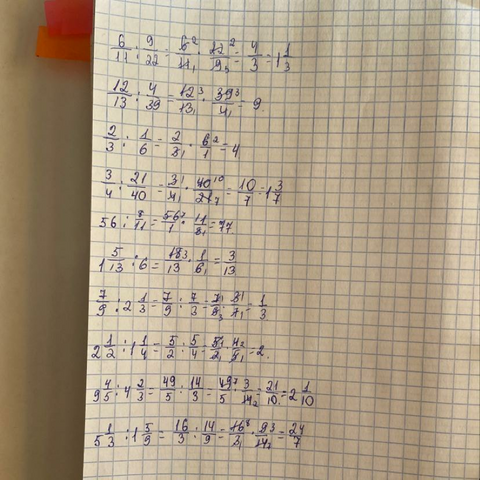 6/11 : 9/22 = 6²/11₁ · 22²/9₃ = 4/3 = 1 1/3
12/13 : 4/39 = 12³/13₁ · 39³/4₁ = 9.
2/3 : 1/6 = 2/3₁ · 6²/1 = 4
3/4 : 21/40 = 3¹/4₁ · 40¹⁰/21₇ = 10/7 = 1 3/7
56 : 8/11 = 56⁷/1 · 11/8₁ = 77
1 5/13 : 6 = 18³/13 · 1/6₁ = 3/13
7/9 : 2 1/3 = 7/9 : 7/3 = 7¹/9₃ · 3¹/7₁ = 1/3
2 1/2 : 1 1/4 = 5/2 : 5/4 = 5¹/2₁ · 4²/5₁ = 2.
9 4/5 : 4 2/3 = 49/5 : 14/3 = 49⁷/5 · 3/14₂ = 21/10 = 2 1/10
5 1/3 : 1 5/9 = 16/3 : 14/9 = 16⁸/3₁ · 9³/14₇ = 24/7